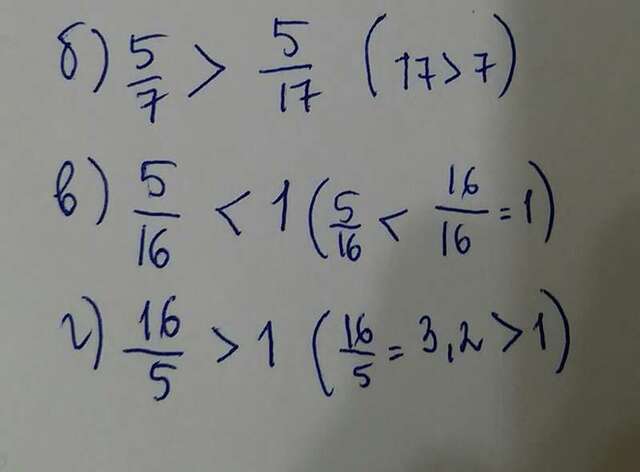 б) 5/7 > 5/17 (17>7)
в) 5/16 < 1 (5/16 < 16/16 = 1)
г) 16/5 > 1 (16/5 = 3,2 > 1)